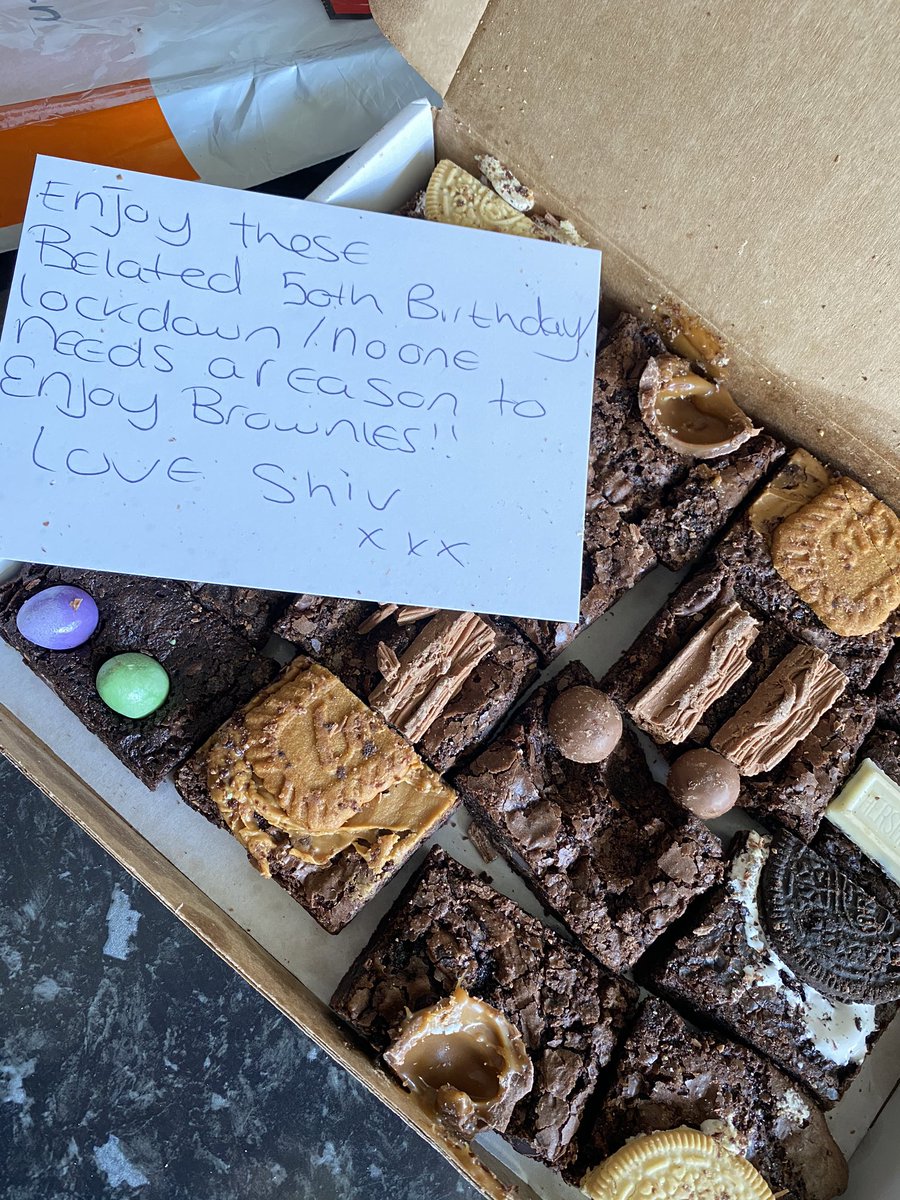 Enjoy these
Belated 50th Birthday/
lockdown/no one
needs a reason to
Enjoy Brownies!!
Love Shiv
xxx